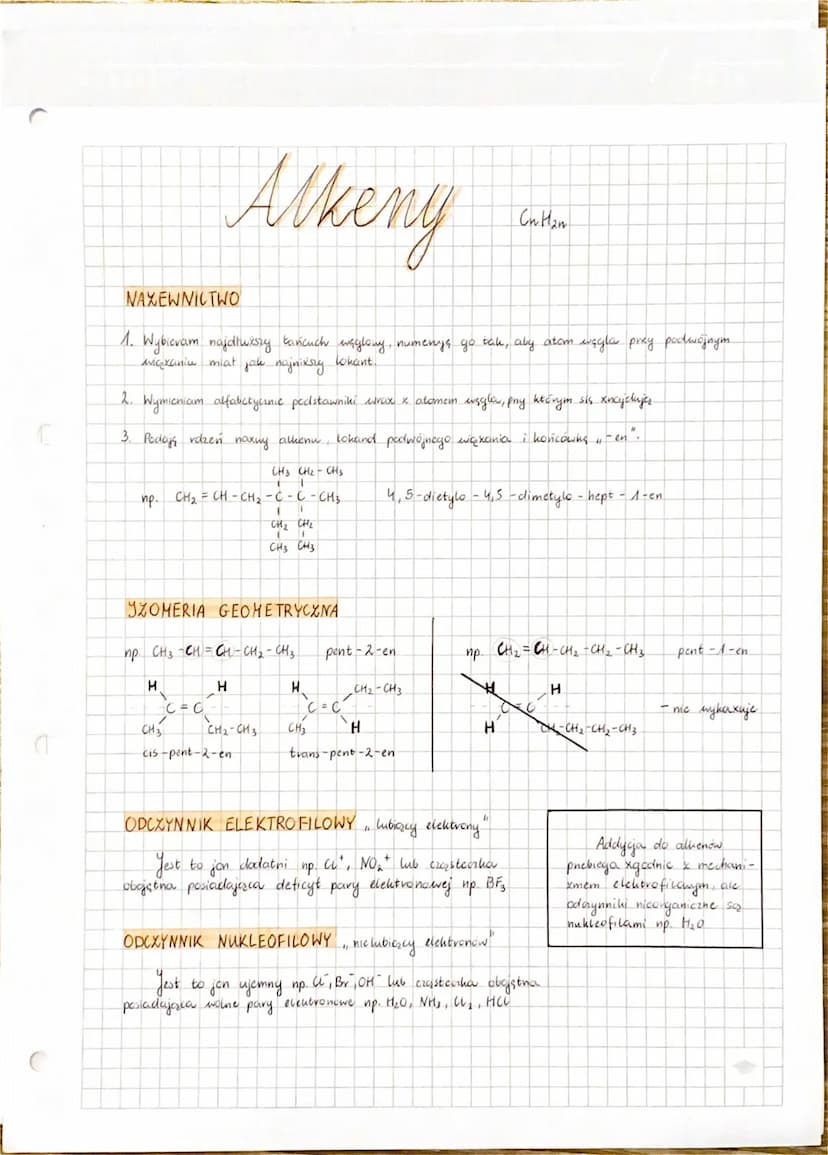 Alkeny
CnH2n
NAZEWNICTWO
1. Wybieram najdłuższy łańcuch węglowy, numeruję go tak, aby atom węgla przy podwójnym
wiązaniu miał jak najniższy lokant.
2. Wymieniam alfabetycznie podstawniki wraz z atomem węgla, przy którym się znajdują
3. Podaję rdzeń nazwy alkenu, lokand podwójnego wiązania i końcówkę „-en".
CH3 CH2 - CH3
np. CH2 = CH - CH2 - C - C - CH3 4,5-dietylo - 4,5 -dimetylo - hept - 1-en
CH2 CH2
CH3 CH3
IZOMERIA GEOMETRYCZNA
np CH3 -CH = CH - CH2 - CH3 pent -2-en
H H H CH2 - CH3
C = C C = C
CH3 CH2 - CH3 CH3 H
cis -pent-2-en trans -pent -2-en
np. CH2 = CH - CH2 - CH2 - CH3 pent -1-en
H H
C = C - nie wykazuje
H CH2 - CH2 - CH2 - CH3
ODCZYNNIK ELEKTROFILOWY „lubiący elektrony"
Jest to jon dodatni np. Cl+, NO2+ lub cząsteczka
obojętna posiadająca deficyt pary elektronowej np. BF3
Addycja do alkenów
przebiega zgodnie z mechani-
zmem elektrofilowym, ale
odczynniki nieorganiczne są
nukleofilami np. H2O
ODCZYNNIK NUKLEOFILOWY „nielubiący elektronów"
Jest to jon ujemny np. Cl-, Br-, OH- lub cząsteczka obojętna
posiadająca wolne pary elektronowe np. H2O, NH3, Cl2, HCl